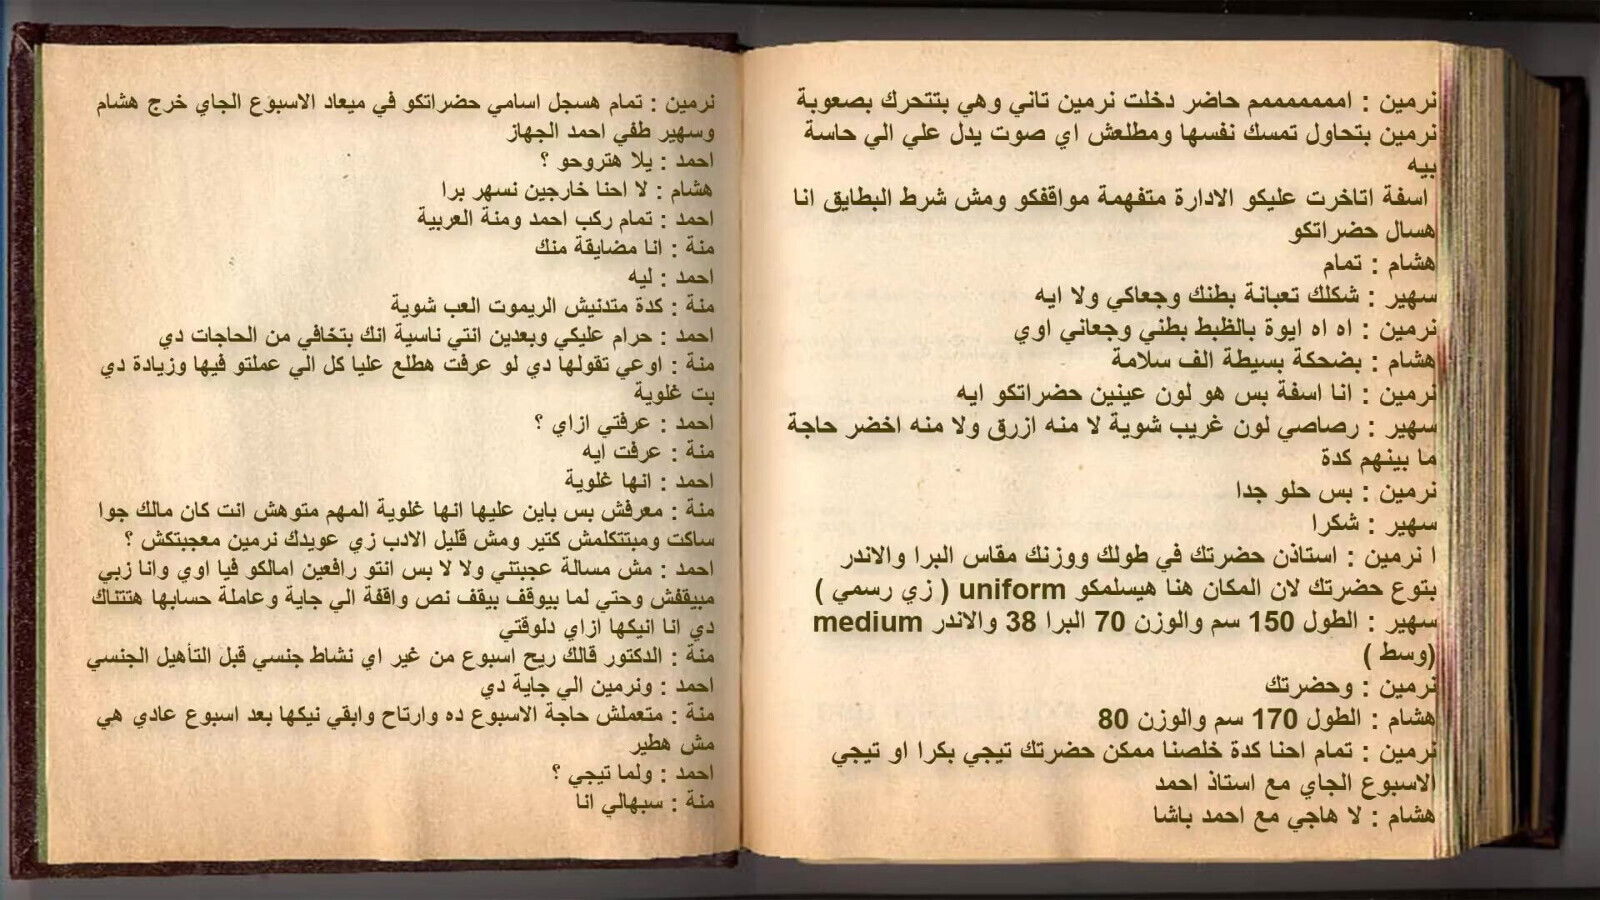 نرمين : امممممممم حاضر دخلت نرمين تاني وهي بتتحرك بصعوبة
نرمين بتحاول تمسك نفسها ومطلعش اي صوت يدل علي الي حاسة
بيه
اسفة اتاخرت عليكو الادارة متفهمة مواقفكو ومش شرط البطايق انا
هسال حضراتكو
هشام : تمام
سهير : شكلك تعبانة بطنك وجعاكي ولا ايه
نرمين : اه اه ايوة بالظبط بطني وجعاني اوي
هشام : بضحكة بسيطة الف سلامة
نرمين : انا اسفة بس هو لون عينين حضراتكو ايه
سهير : رصاصي لون غريب شوية لا منه ازرق ولا منه اخضر حاجة
ما بينهم كدة
نرمين : بس حلو جدا
سهير : شكرا
ا نرمين : استاذن حضرتك في طولك ووزنك مقاس البرا والاندر
بتوع حضرتك لان المكان هنا هيسلمكو uniform ( زي رسمي )
سهير : الطول 150 سم والوزن 70 البرا 38 والاندر medium
(وسط )
نرمين : وحضرتك
هشام : الطول 170 سم والوزن 80
نرمين : تمام احنا كدة خلصنا ممكن حضرتك تيجي بكرا او تيجي
الاسبوع الجاي مع استاذ احمد
هشام : لا هاجي مع احمد باشا
نرمين : تمام هسجل اسامي حضراتكو في ميعاد الاسبوع الجاي خرج هشام
وسهير طفي احمد الجهاز
احمد : يلا هتروحو ؟
هشام : لا احنا خارجين نسهر برا
احمد : تمام ركب احمد ومنة العربية
منة : انا مضايقة منك
احمد : ليه
منة : كدة متدنيش الريموت العب شوية
احمد : حرام عليكي وبعدين انتي ناسية انك بتخافي من الحاجات دي
منة : اوعي تقولها دي لو عرفت هطلع عليا كل الي عملتو فيها وزيادة دي
بت غلوية
احمد : عرفتي ازاي ؟
منة : عرفت ايه
احمد : انها غلوية
منة : معرفش بس باين عليها انها غلوية المهم متوهش انت كان مالك جوا
ساكت ومبتتكلمش كتير ومش قليل الادب زي عويدك نرمين معجبتكش ؟
احمد : مش مسالة عجبتني ولا لا بس انتو رافعين امالكو فيا اوي وانا زبي
مبيقفش وحتي لما بيوقف بيقف نص واقفة الي جاية وعاملة حسابها هتتناك
دي انا انيكها ازاي دلوقتي
منة : الدكتور قالك ريح اسبوع من غير اي نشاط جنسي قبل التأهيل الجنسي
احمد : ونرمين الي جاية دي
منة : متعملش حاجة الاسبوع ده وارتاح وابقي نيكها بعد اسبوع عادي هي
مش هطير
احمد : ولما تيجي ؟
منة : سبهالي انا